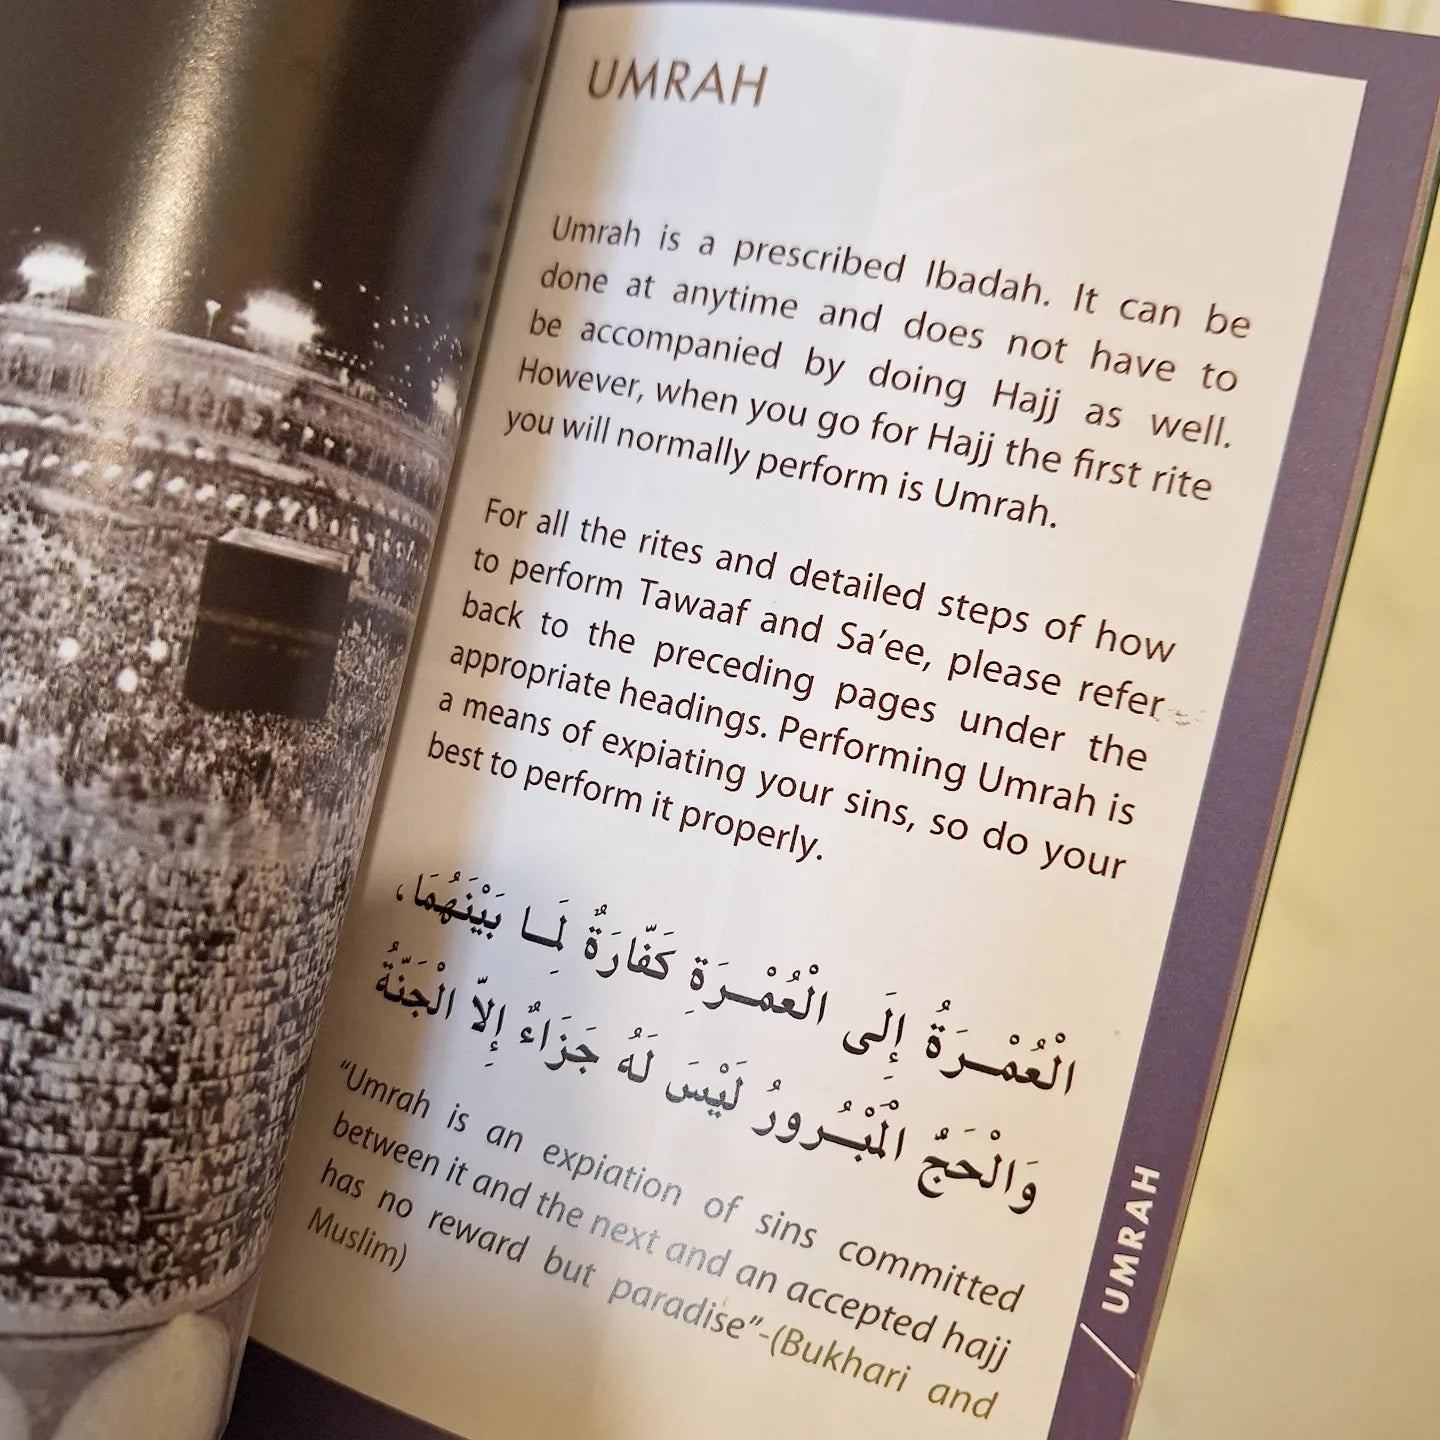 UMRAH
Umrah is a prescribed Ibadah. It can be
done at anytime and does not have to
be accompanied by doing Hajj as well.
However, when you go for Hajj the first rite
you will normally perform is Umrah.
For all the rites and detailed steps of how
to perform Tawaaf and Sa’ee, please refer
back to the preceding pages under the
appropriate headings. Performing Umrah is
a means of expiating your sins, so do your
best to perform it properly.
الْعُمْـرَةُ إِلَى الْعُمْـرَةِ كَفَّارَةٌ لِمَـا بَيْنَهُمَا،
وَالْحَجُّ الْمَبْـرورُ لَيْسَ لَهُ جَزَاءٌ إِلاّ الْجَنَّةُ
“Umrah is an expiation of sins committed
between it and the next and an accepted hajj
has no reward but paradise”-(Bukhari and
Muslim)
/ UMRAH